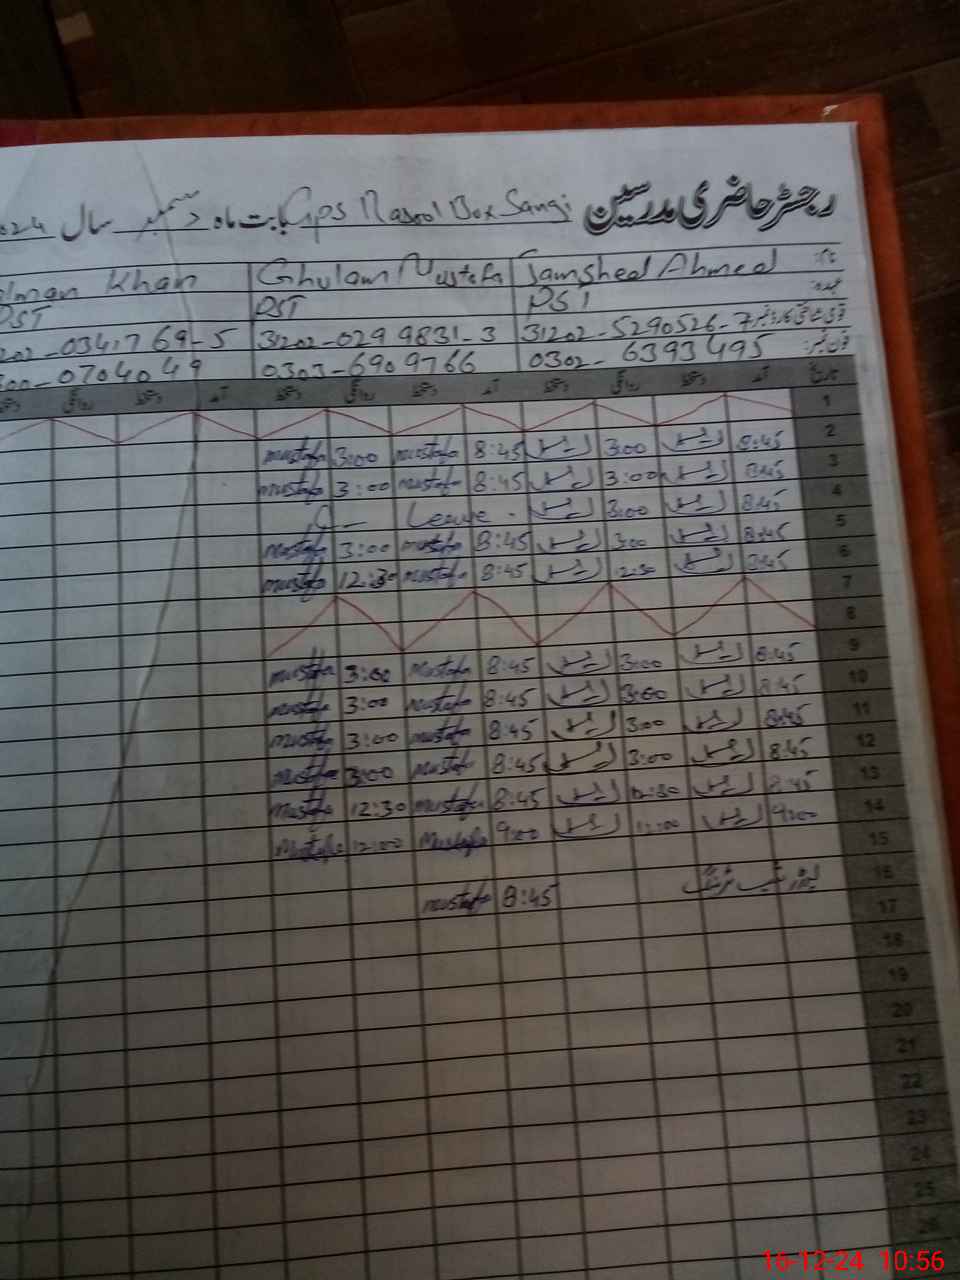 رجسٹر حاضری مدرسین GPS Rasool Box Sangi بابت ماہ دسمبر سال 2024
نام Jamsheed Ahmed Ghulam Mustafa Khan
عہدہ PST PST PST
قومی شناختی کارڈ نمبر 31202-5290526-7 31202-0299831-3 202-0341769-5
فون نمبر: 0302-6393495 0303-6909766 300-0704049
تاریخ آمد دستخط روانگی دستخط آمد دستخط روانگی دستخط آمد دستخط روانگی دستخط
1
2 8:45 3:00 8:45 mustafa 3:00 mustafa
3 8:45 3:00 8:45 mustafa 3:00 mustafa
4 8:45 3:00 Leave
5 8:45 3:00 8:45 mustafa 3:00 mustafa
6 8:45 12:30 8:45 mustafa 12:30 mustafa
7
8
9 8:45 3:00 8:45 mustafa 3:00 mustafa
10 8:45 3:00 8:45 mustafa 3:00 mustafa
11 8:45 3:00 8:45 mustafa 3:00 mustafa
12 8:45 3:00 8:45 mustafa 3:00 mustafa
13 8:45 12:30 8:45 mustafa 12:30 mustafa
14 9:00 12:00 9:00 Mustafa 12:00 Mustafa
15
16 ٹریننگ 8:45 mustafa
17
18
19
20
21
22
23
24
25
26
16-12-24 10:56